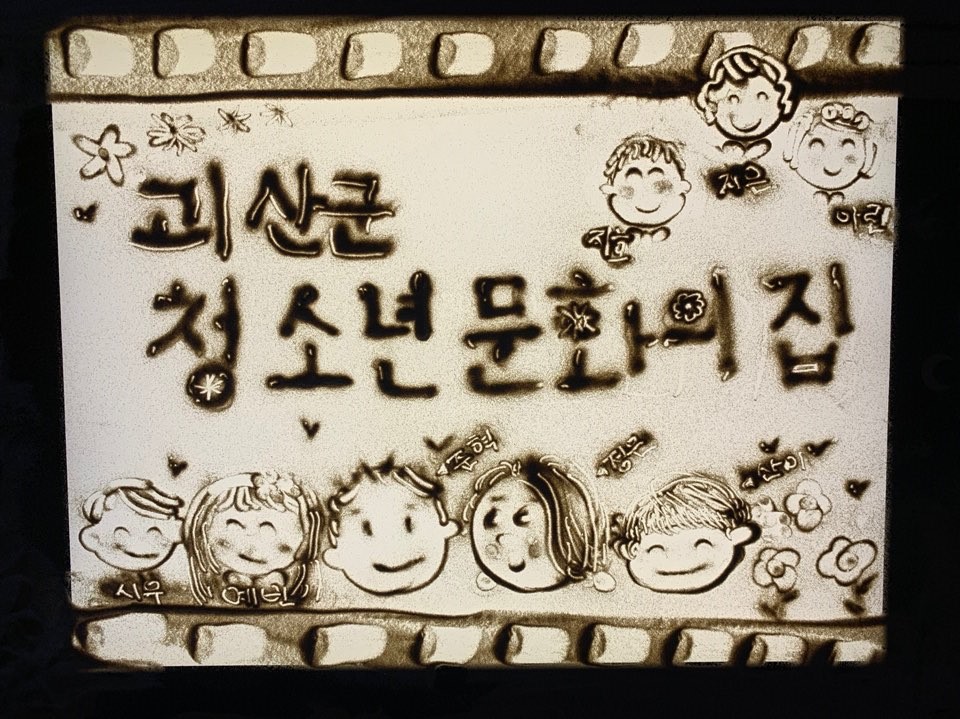 괴산군
청소년 문화의 집
지호
지은
아린
준혁
정윤
산이
시우
예빈